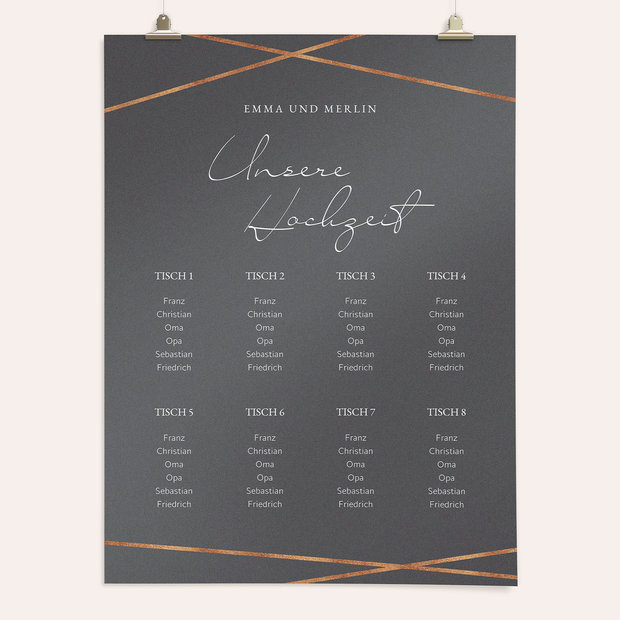 EMMA UND MERLIN
Unsere
Hochzeit
TISCH 1
Franz
Christian
Oma
Opa
Sebastian
Friedrich
TISCH 2
Franz
Christian
Oma
Opa
Sebastian
Friedrich
TISCH 3
Franz
Christian
Oma
Opa
Sebastian
Friedrich
TISCH 4
Franz
Christian
Oma
Opa
Sebastian
Friedrich
TISCH 5
Franz
Christian
Oma
Opa
Sebastian
Friedrich
TISCH 6
Franz
Christian
Oma
Opa
Sebastian
Friedrich
TISCH 7
Franz
Christian
Oma
Opa
Sebastian
Friedrich
TISCH 8
Franz
Christian
Oma
Opa
Sebastian
Friedrich